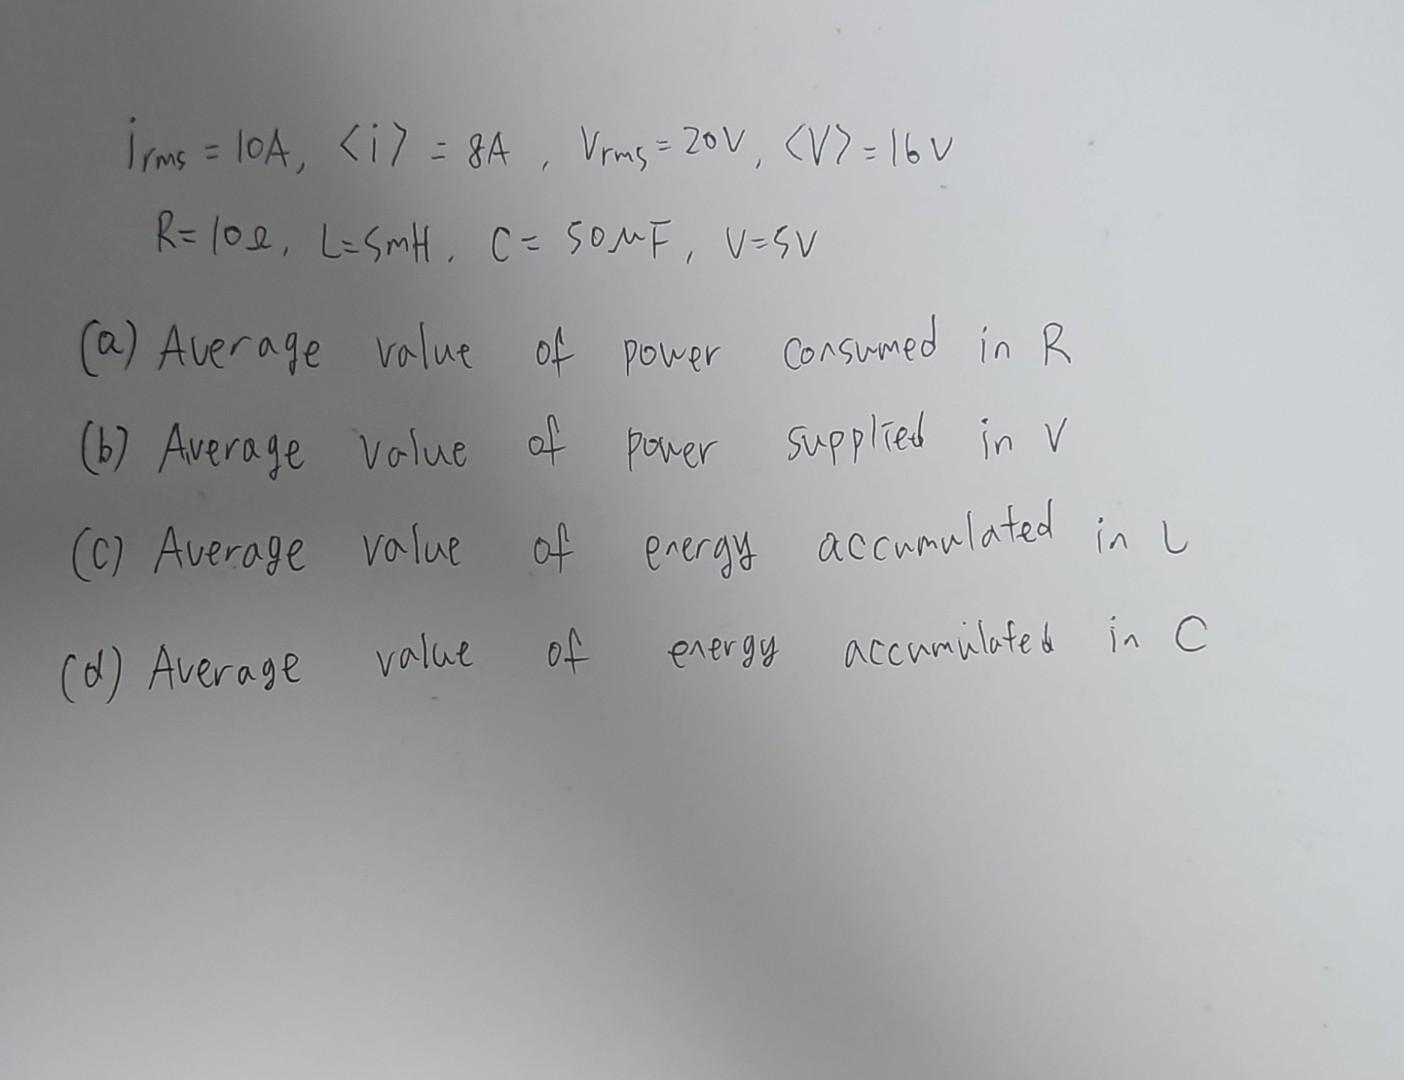 irms = 10A, <i> = 8A, Vrms = 20V, <V> = 16V
R=10Ω, L=5mH, C= 50μF, V=5V
(a) Average value of power consumed in R
(b) Average value of power supplied in V
(c) Average value of energy accumulated in L
(d) Average value of energy accumulated in C